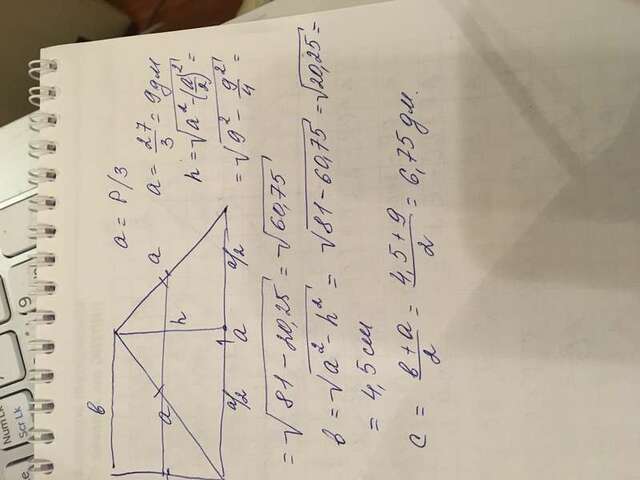 a = P/3
a = 27/3 = 9 дм
h = √(a² - (a/2)²) =
= √(9² - 9²/4) =
= √(81 - 20,25) = √60,75
в = √(a² - h²) = √(81 - 60,75) = √20,25 =
= 4,5 см
c = (в + a)/2 = (4,5 + 9)/2 = 6,75 дм.
в
a
a
h
a/2
a
a/2
NumLk
ScrLk
9